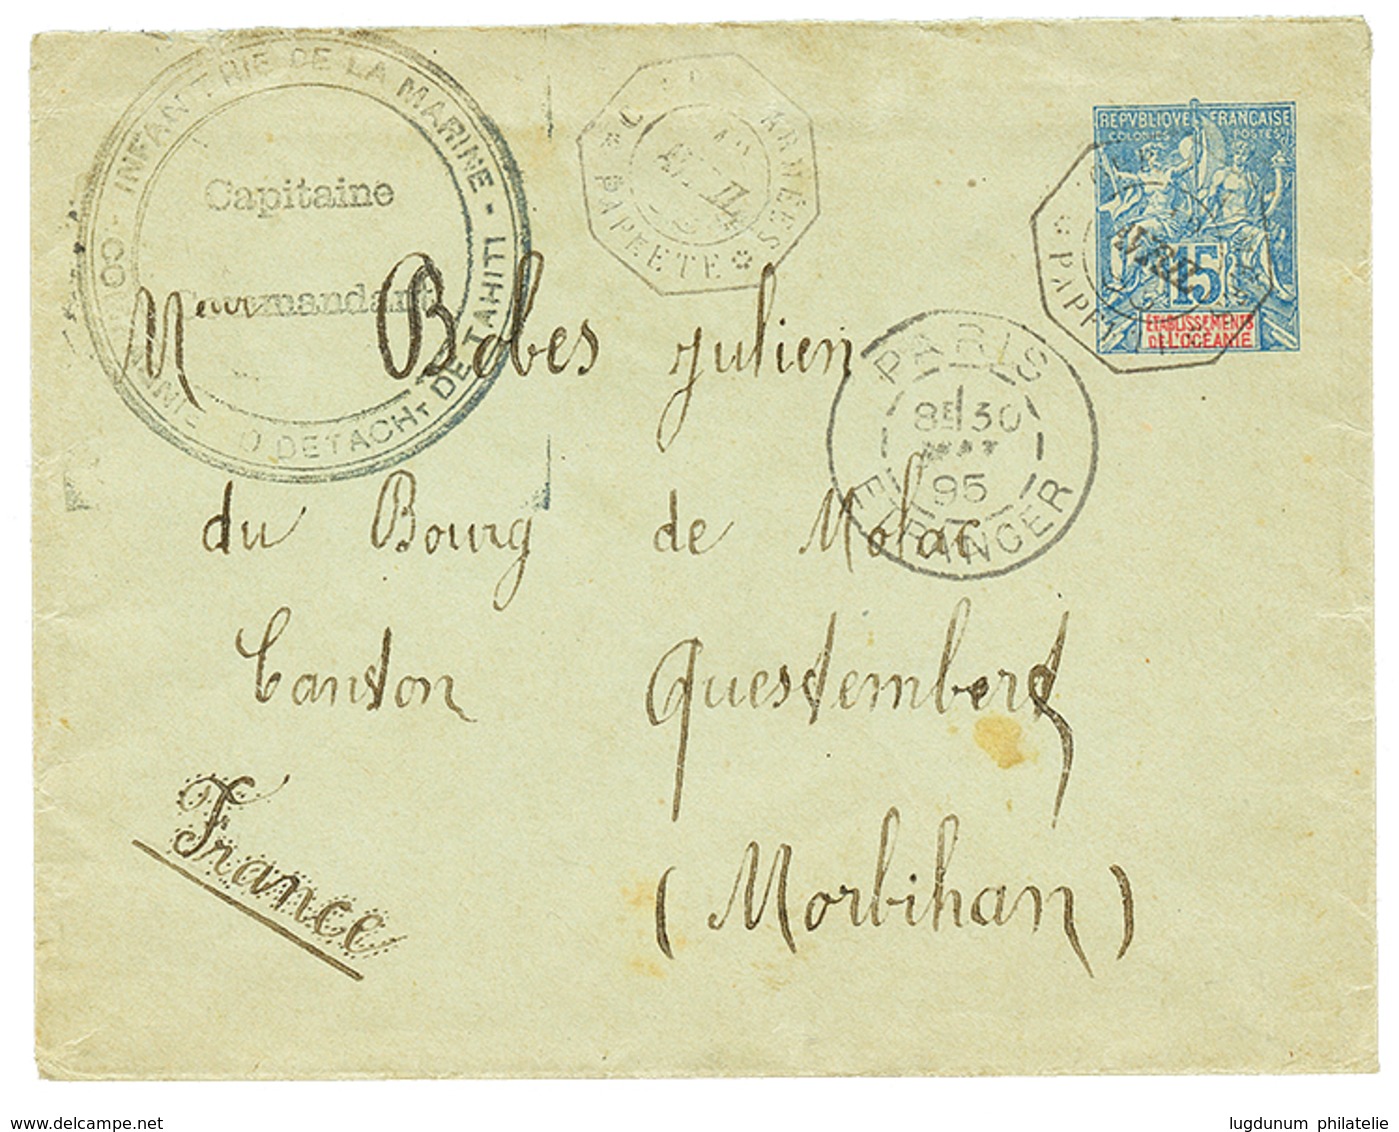 INFANTERIE DE LA MARINE - DETACHT DE TAHITI
Capitaine
Commandant
ARMÉES
PAPEETE
REPUBLIQUE FRANCAISE
COLONIES POSTES
15
ETABLISSEMENTS
DE L'OCÉANIE
AVRIL
PARIS
8E 30
MAI
95
ETRANGER
Meur Bobes Julien
du Bourg de Molac
Canton Questemberd
(Morbihan)
France
www.delcampe.net
lugdunum philatelie